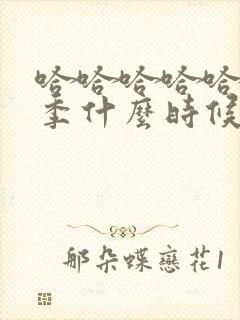 哈哈哈哈哈
季什麼時候
那朵蝶戀花1